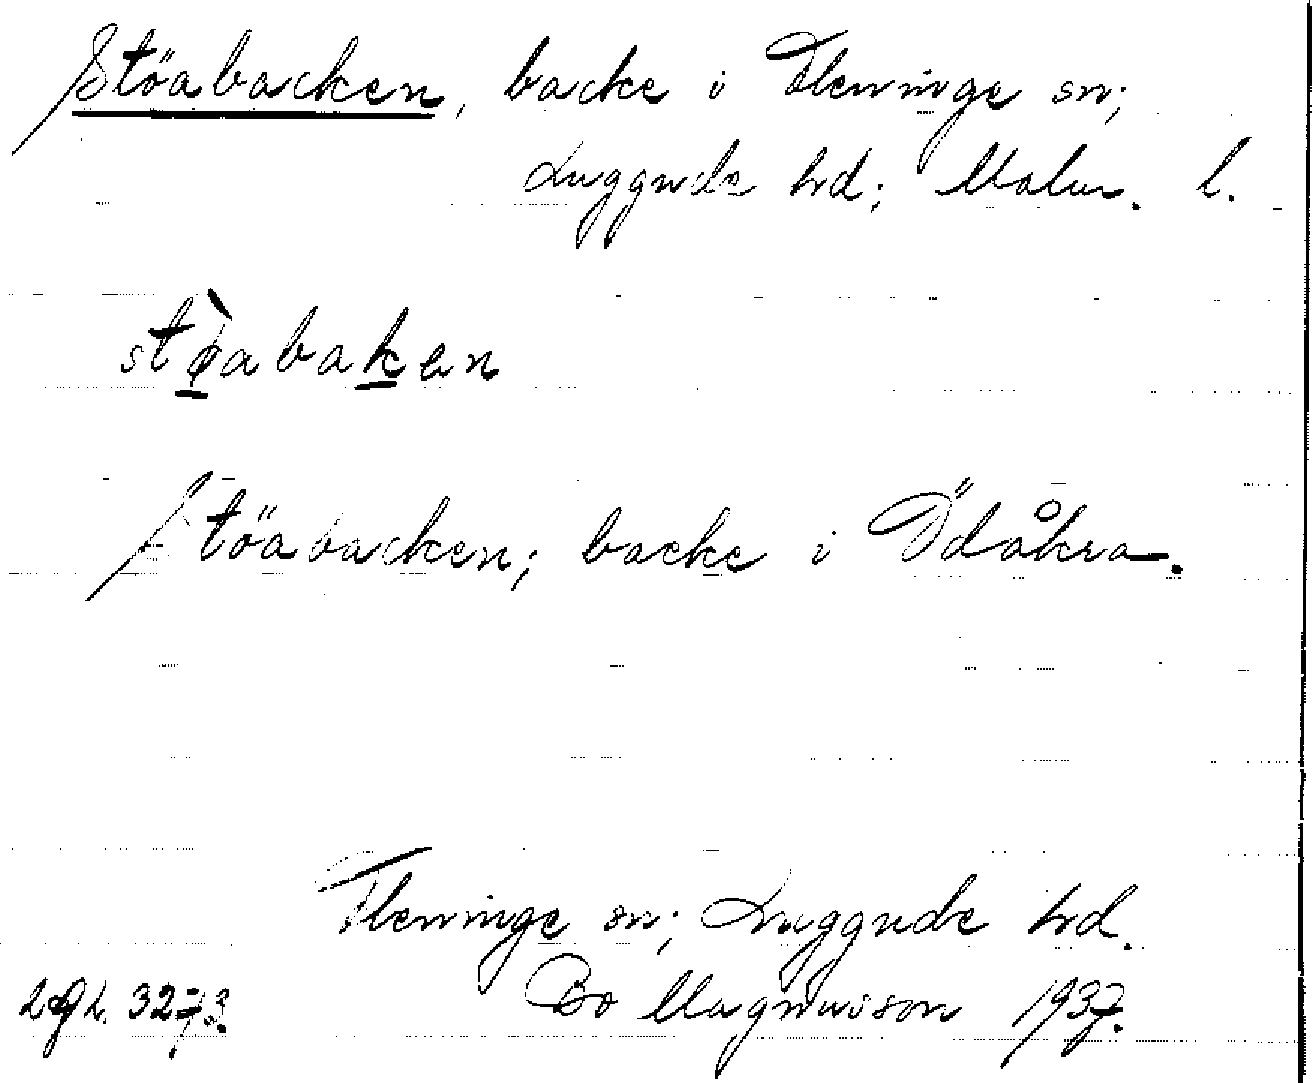 Stöabacken, backe i Fleninge sn;
Luggude hrd; Malm. l.
stø̀abaken
Stöabacken; backe i Ödåkra.
Fleninge sn; Luggude hrd.
Bo Magnusson 1937.
3273.